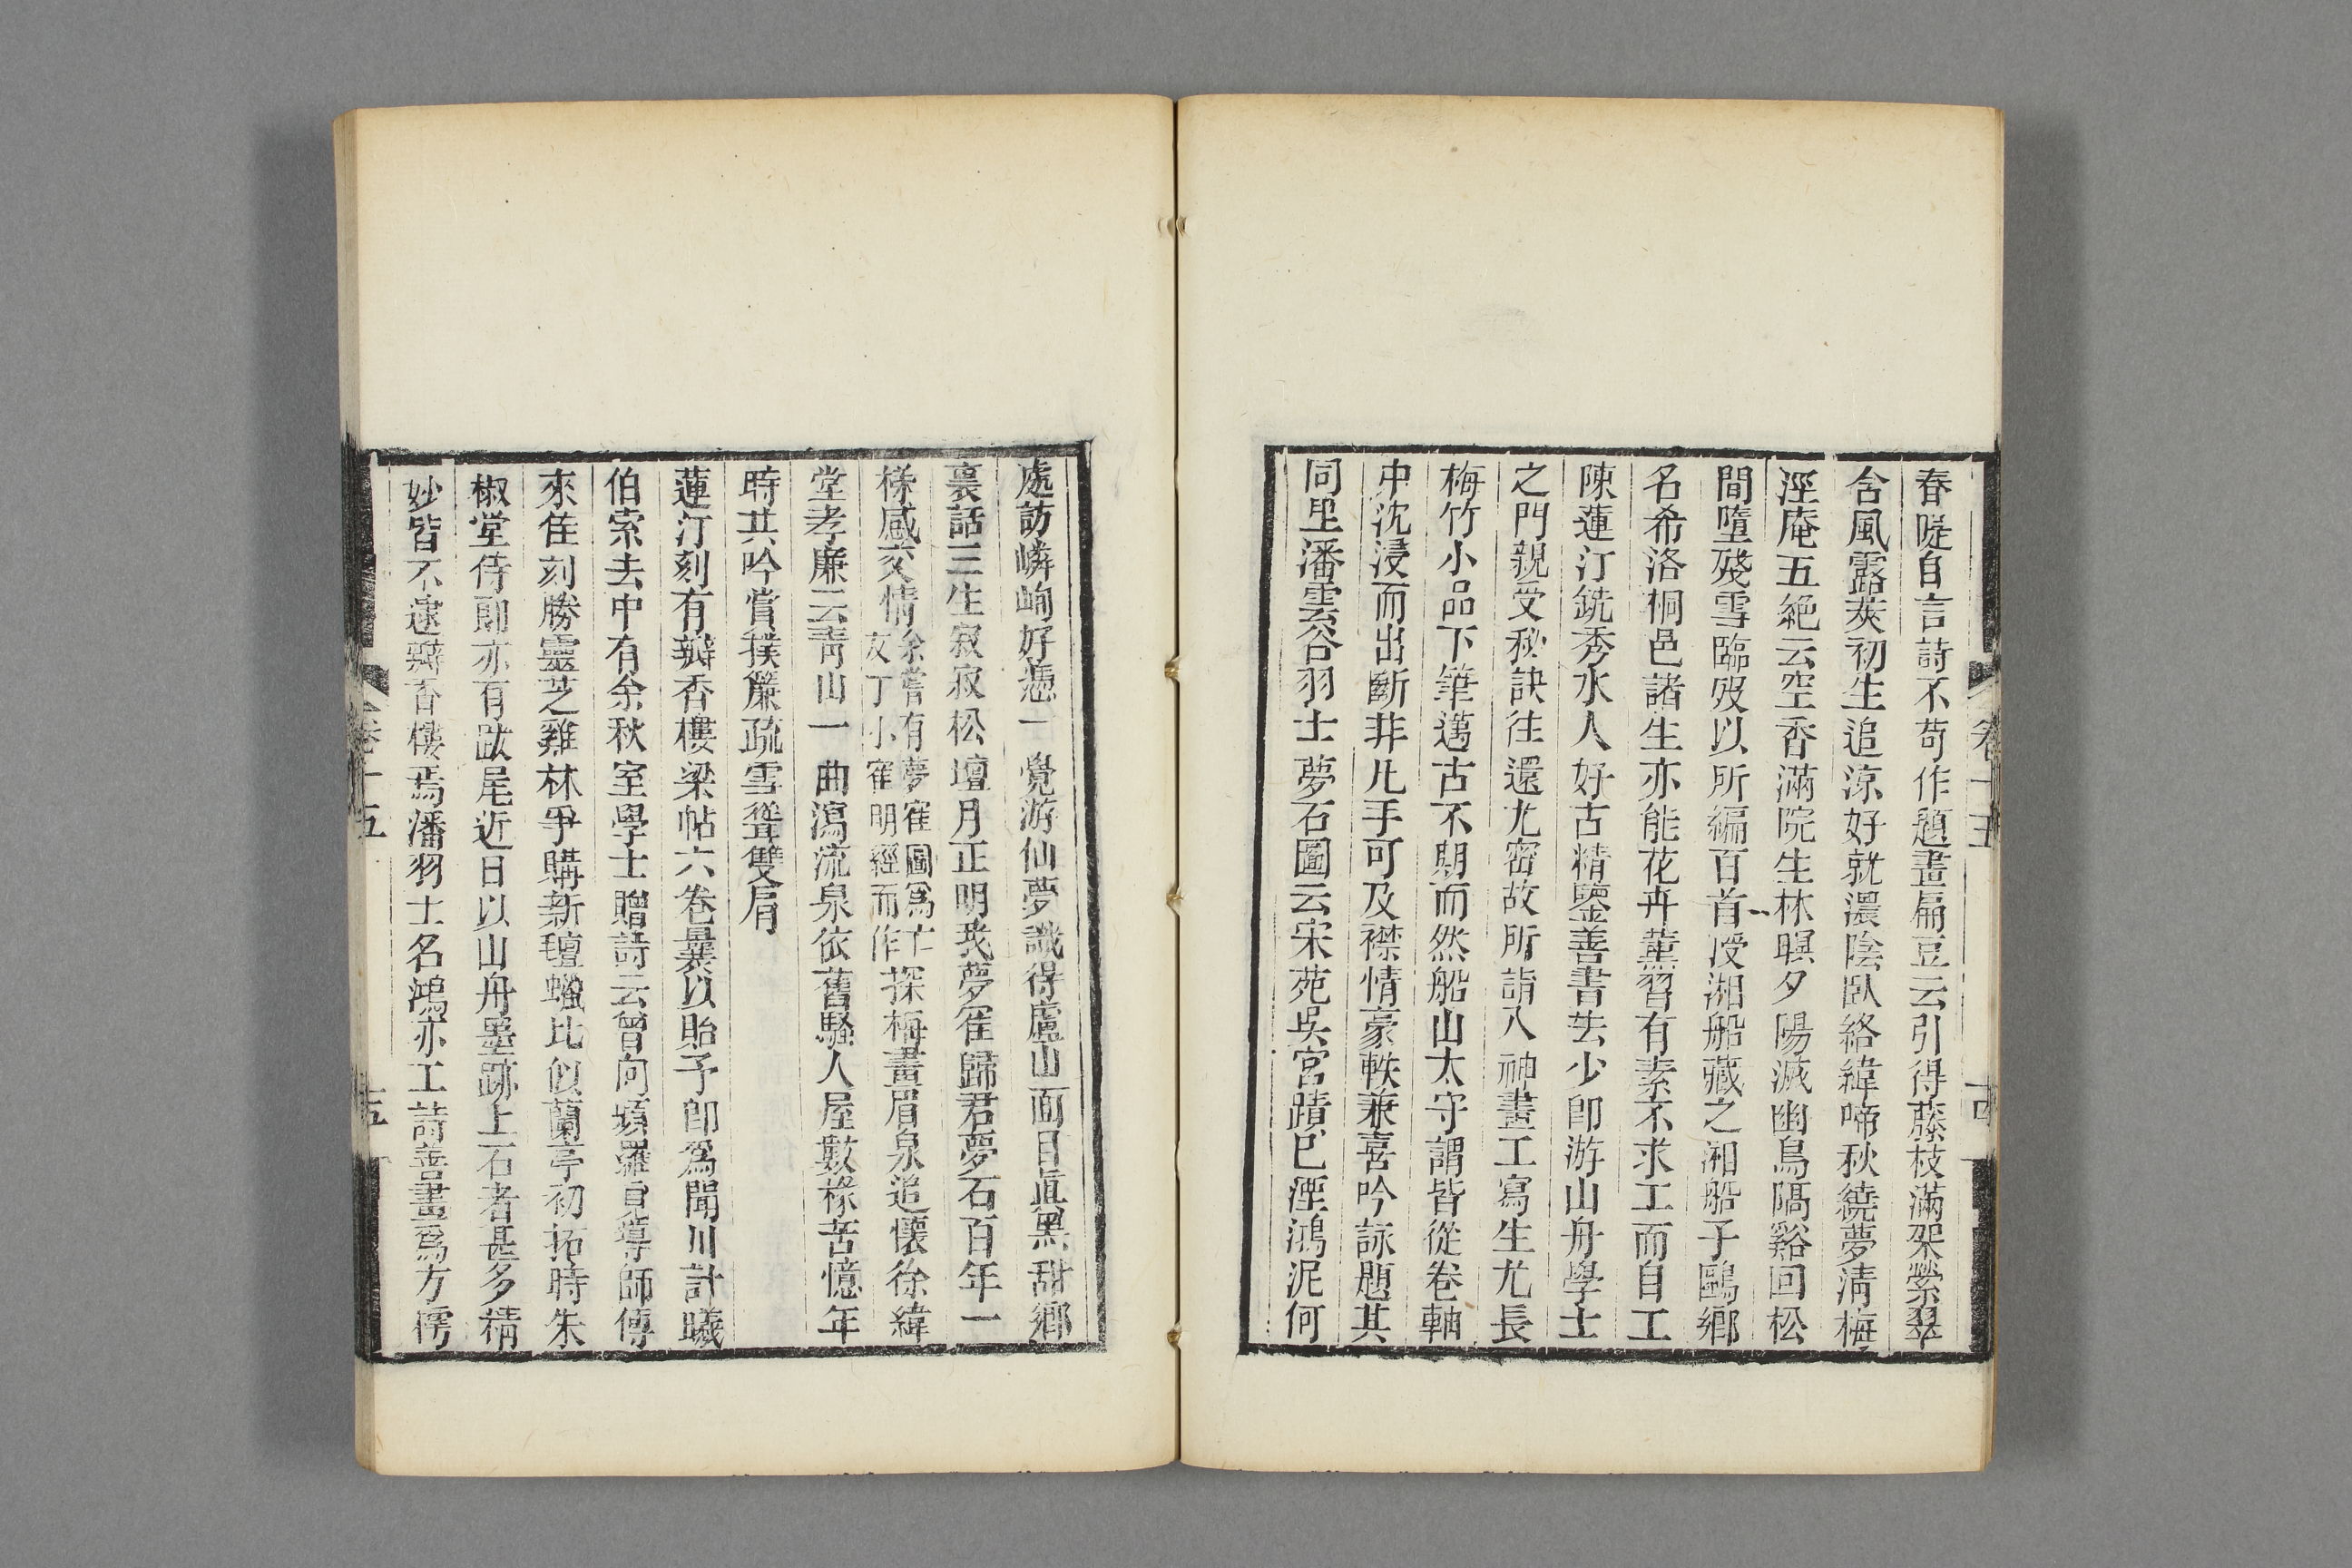 春隄自言詩不苟作題畫扁豆云引得藤枝滿架縈翠
含風露莢初生追涼好就濃陰臥絡緯啼秋繞夢淸梅
涇庵五絕云空香滿院生林暝夕陽滅幽鳥隔谿回松
間墮殘雪臨歿以所編百首授湘船藏之湘船子鷗鄉
名希洛桐邑諸生亦能花卉薰習有素不求工而自工
陳蓮汀銑秀水人好古精鑒善書法少卽游山舟學士
之門親受秘訣往還尤密故所詣入神畫工寫生尤長
梅竹小品下筆邁古不期而然船山太守謂皆從卷軸
中沈浸而出斷非凡手可及襟情豪軼兼喜吟詠題其
同里潘雲谷羽士夢石圖云宋苑吳宮蹟已湮鴻泥何
卷十五
處訪嶙峋好憑一覺游仙夢識得廬山面目眞黑甜鄉
裏話三生寂寂松壇月正明我夢寉歸君夢石百年一
樣感交情余嘗有夢寉圖爲亡
友丁小寉明經而作探梅畫眉泉追懷徐緯
堂孝廉云靑山一曲瀉流泉依舊騷人屋數椽苦憶年
時共吟賞撲簾疏雪聳雙肩
蓮汀刻有瓣香樓梁帖六卷曩以貽予卽爲聞川計曦
伯索去中有余秋室學士贈詩云曾向頻羅見導師傅
來佳刻勝靈芝雞林爭購新氊蠟比似蘭亭初拓時朱
椒堂侍郎亦有跋尾近日以山舟墨跡上石者甚多精
妙皆不逮瓣香樓焉潘羽士名鴻亦工詩善畫爲方儒
卷十五
十五